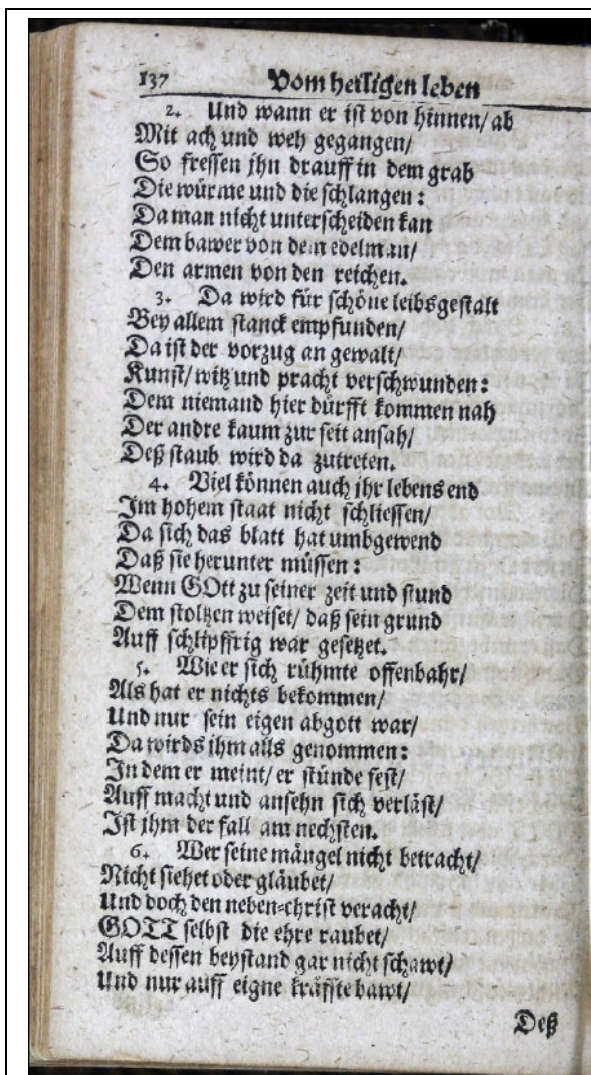 137 Vom heiligen leben
2. Und wann er ist von hinnen/ ab
Mit ach und weh gegangen/
So fressen jhn drauff in dem grab
Die würme und die schlangen:
Da man nicht unterscheiden kan
Dem bawer von dem edelman/
Den armen von den reichen.
3. Da wird für schöne leibsgestalt
Bey allem stanck empfunden/
Da ist der vorzug an gewalt/
Kunst/ witz und pracht verschwunden:
Dem niemand hier dürfft kommen nah
Der andre kaum zur seit ansah/
Deß staub wird da zutreten.
4. Viel können auch jhr lebens end
Im hohem staat nicht schliessen/
Da sich das blatt hat umbgewend
Daß sie herunter müssen:
Wenn GOtt zu seiner zeit und stund
Dem stoltzen weiset/ daß sein grund
Auff schlipffrig war gesetzet.
5. Wie er sich rühmte offenbahr/
Als hat er nichts bekommen/
Und nur sein eigen abgott war/
Da wirds ihm alls genommen:
In dem er meint/ er stünde fest/
Auff macht und ansehn sich verläst/
Ist jhm der fall am nechsten.
6. Wer seine mängel nicht betracht/
Nicht siehet oder gläubet/
Und doch den neben-christ veracht/
GOTT selbst die ehre raubet/
Auff dessen beystand gar nicht schawt/
Und nur auff eigne kräffte bawt/
Deß